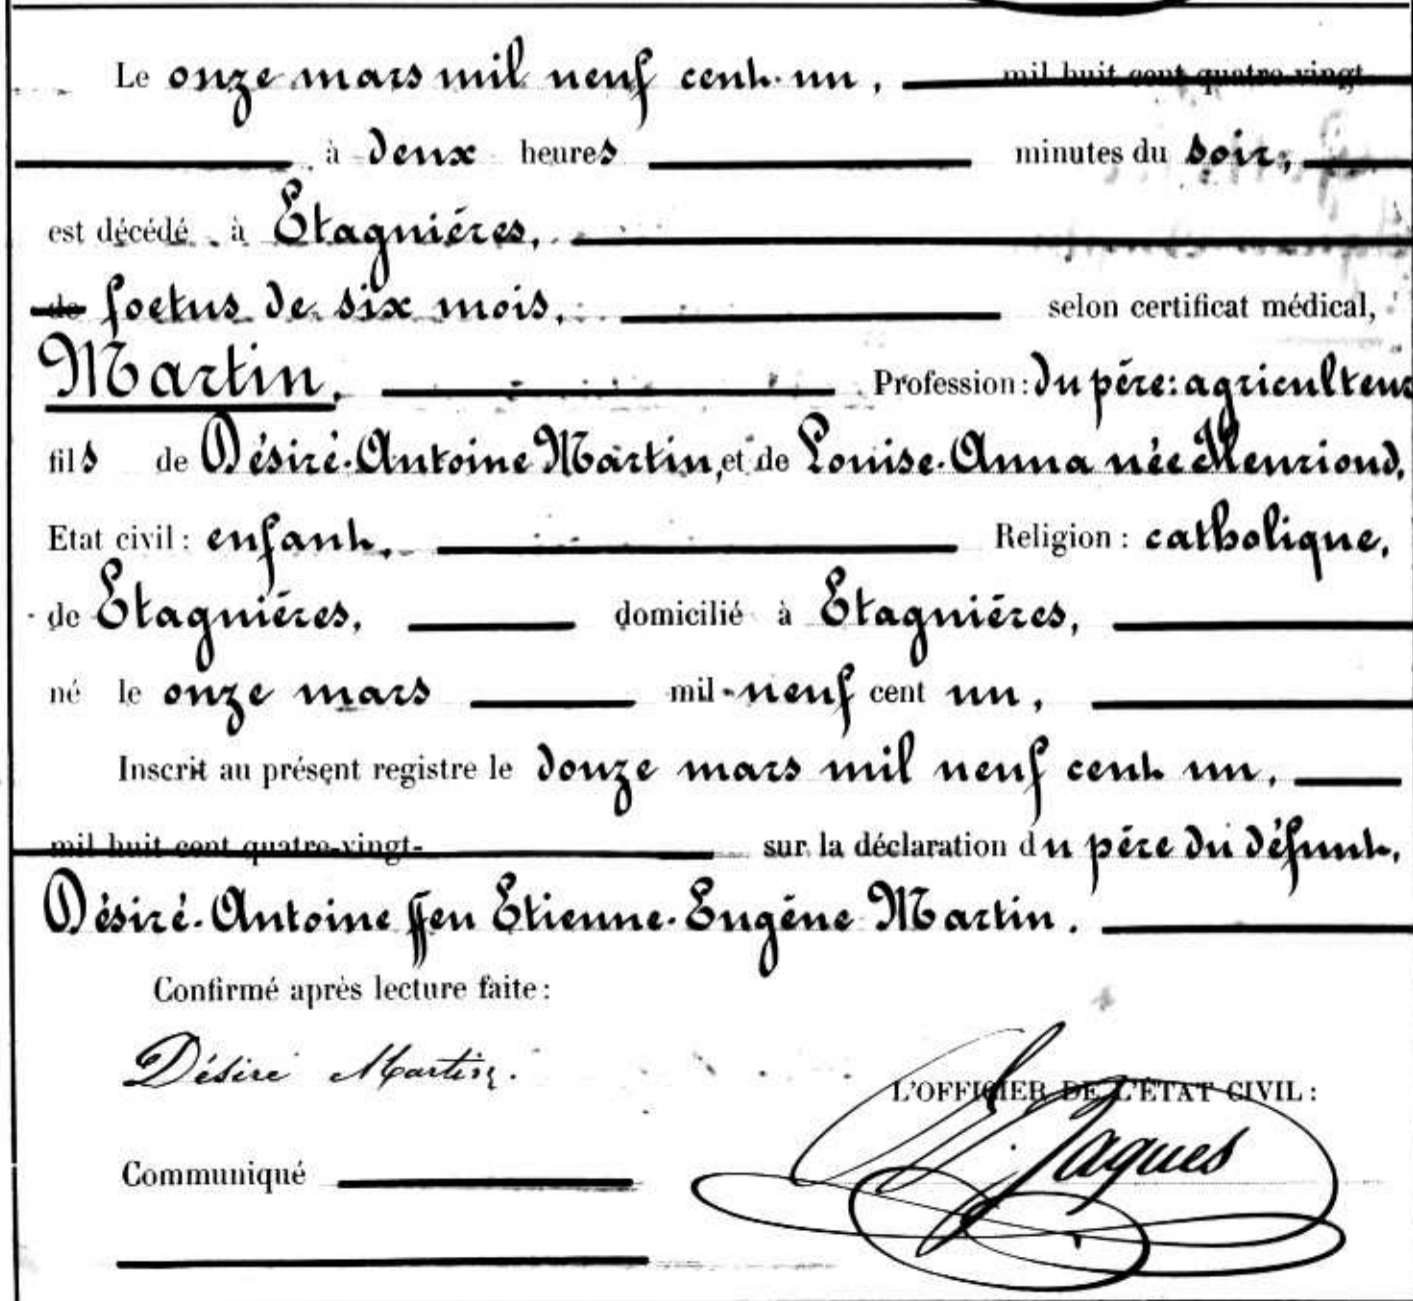 Le onze mars mil neuf cent un, mil huit cent quatre-vingt
à deux heures minutes du soir,
est décédé à Etagniéres,
de foetus de six mois, selon certificat médical,
Martin, Profession: du pére: agriculteur
fils de Désiré-Antoine Martin, et de Louise-Anna née Henrioud,
Etat civil: enfant, Religion: catholique,
de Etagniéres, domicilié à Etagniéres,
né le onze mars mil neuf cent un,
Inscrit au présent registre le douze mars mil neuf cent un,
mil huit cent quatre-vingt- sur la déclaration du pére du défunt,
Désiré-Antoine ffeu Etienne-Eugéne Martin.
Confirmé après lecture faite:
Désiré Martin.
L'OFFICIER DE L'ÉTAT CIVIL:
Jaques
Communiqué